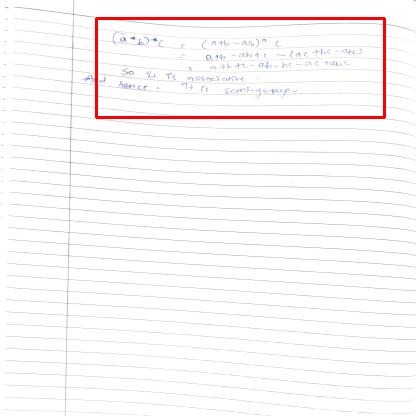 (a*b)*c = (a+b-ab)*c
= a+b-ab+c-(ac+bc-abc)
= a+b+c-ab-bc-ac+abc
So it is associative.
And hence. It is semi-group.